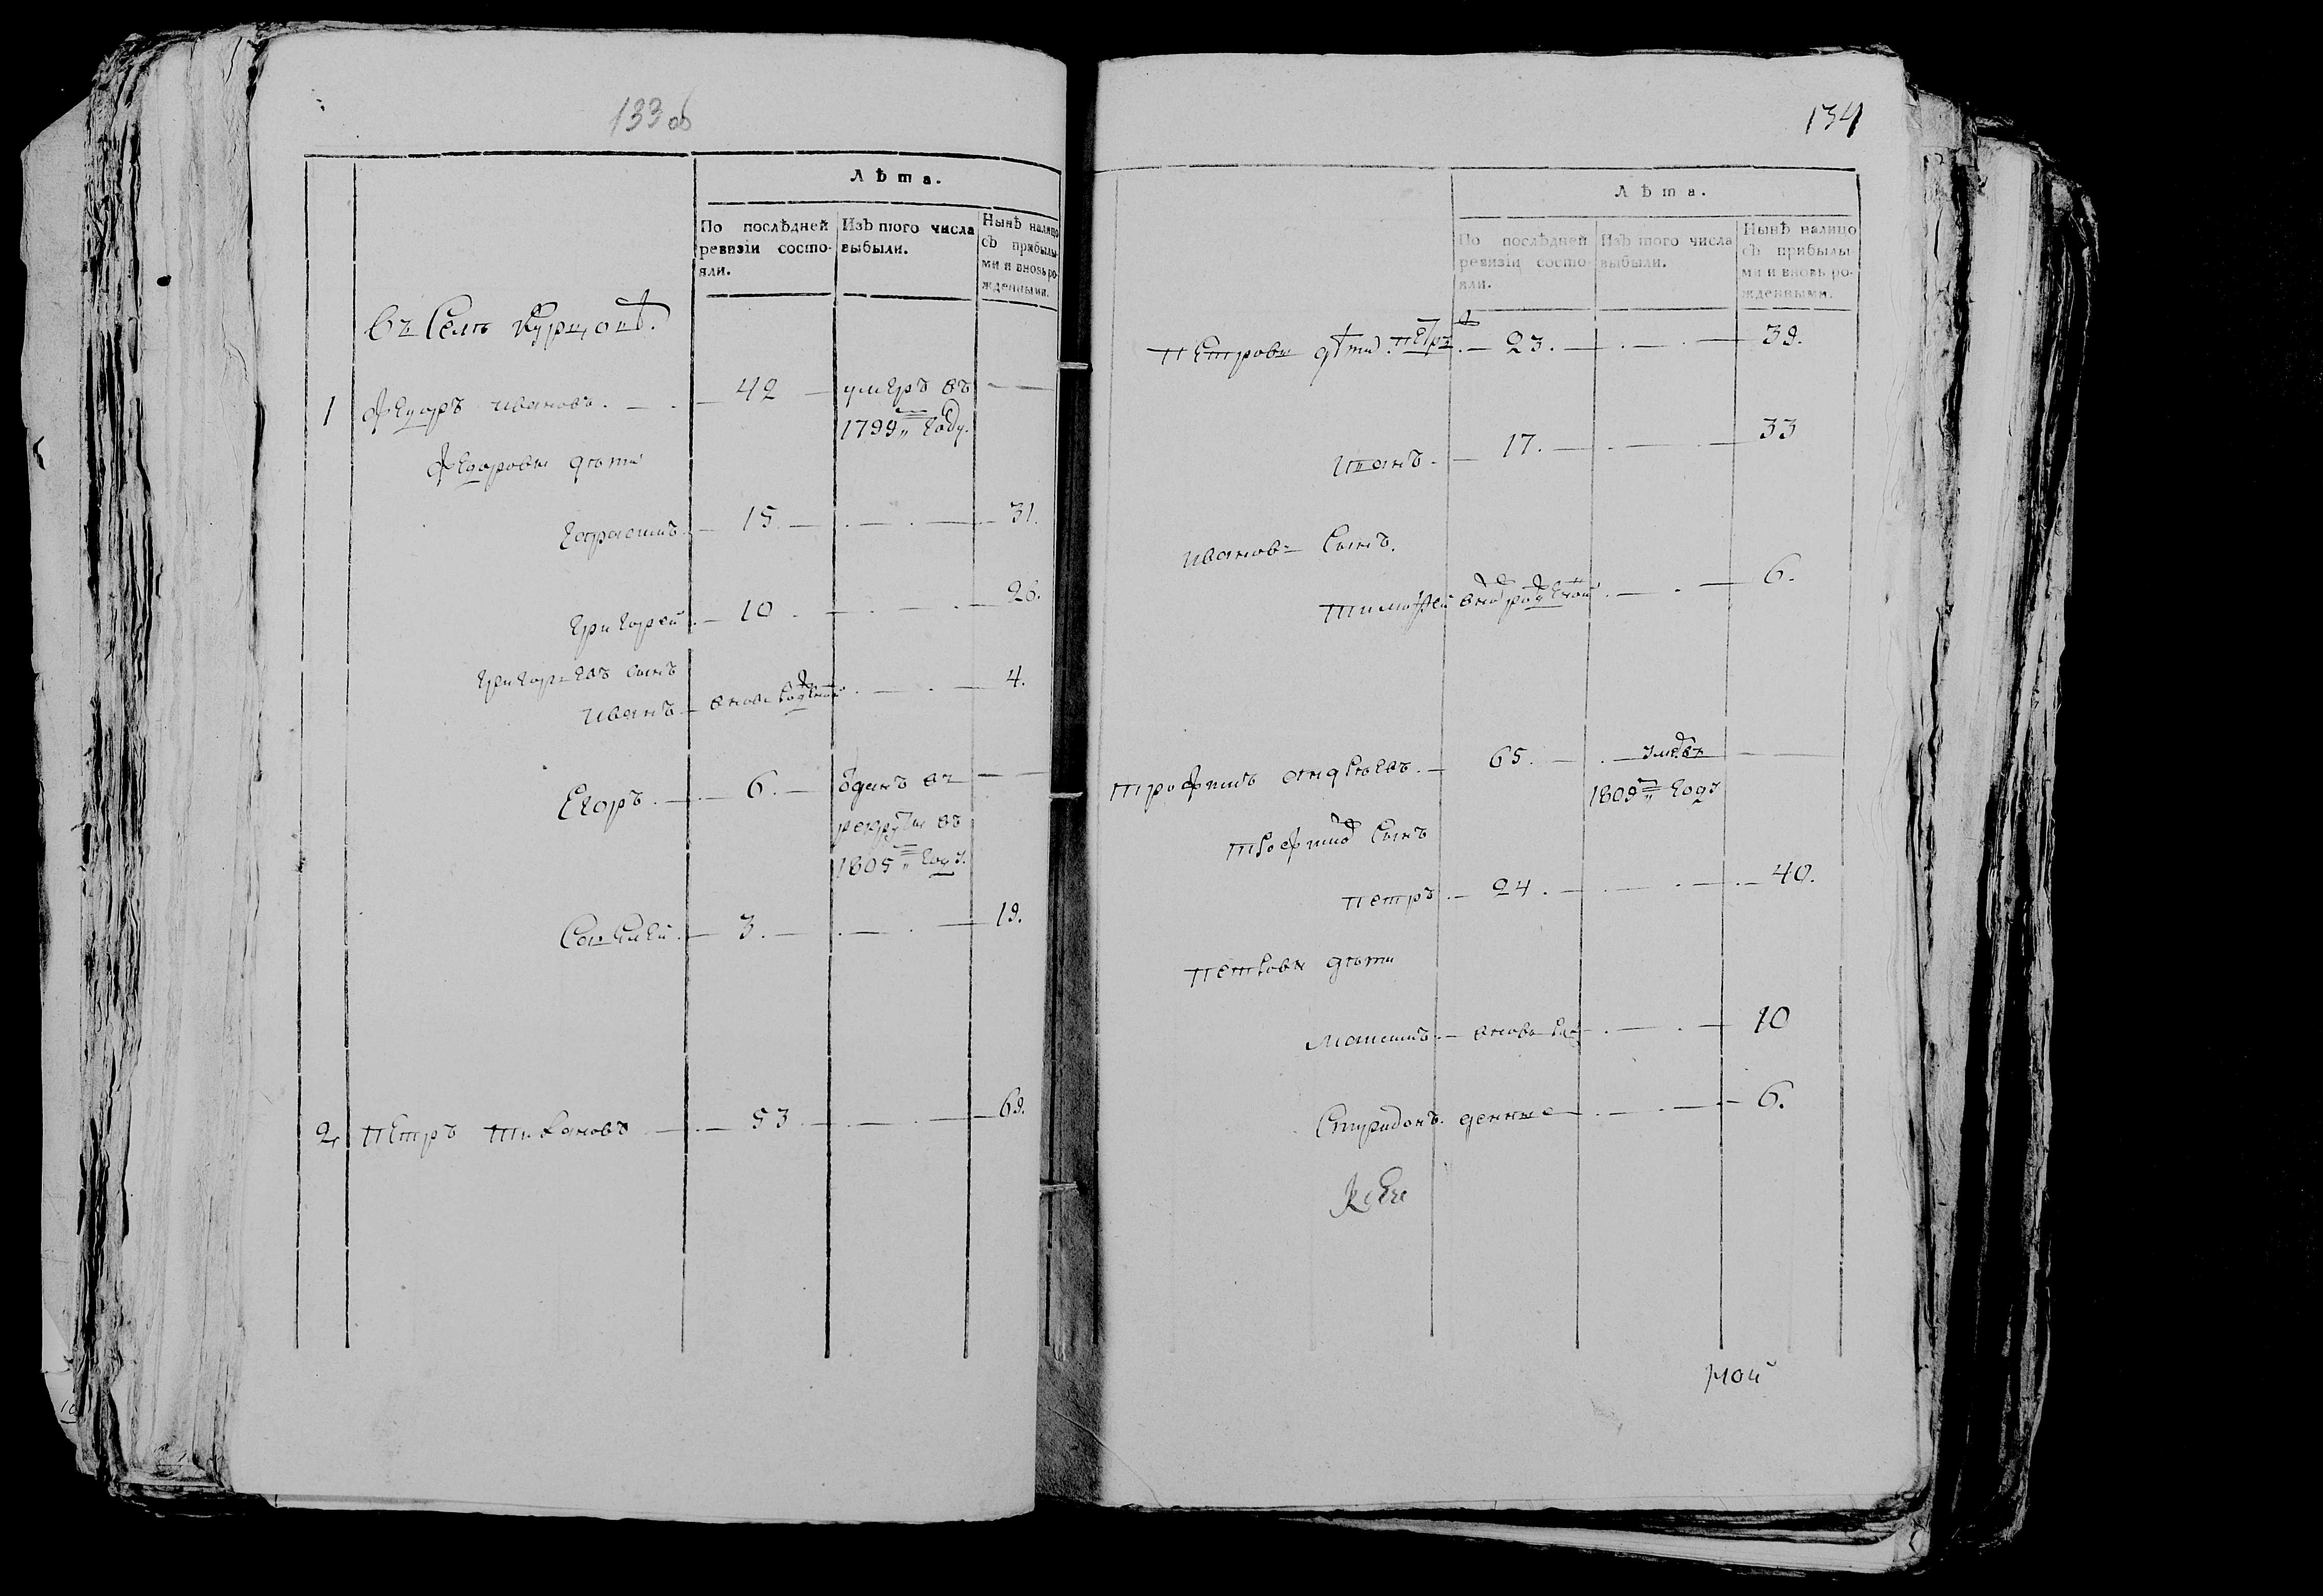 133 об
Лѣта.
По послѣдней ревизіи состояли.
Изъ того числа выбыли.
Нынѣ налицо съ прибылыми и вновь рожденными.
Въ Селѣ
1 Федоръ ивановъ. 42 умеръ въ
1799 году.
Федоровы дѣти
Гарасимъ 15 31.
Григорей 10 26.
Григорьевъ сынъ
иванъ вновь рожденной 4.
Егоръ. 6. одданъ въ
рекруты въ
1805 году.
Савелей. 3. 19.
2. Петръ 53 69.
134
Лѣта.
По послѣдней ревизіи состояли.
Изъ того числа выбыли.
Нынѣ налицо съ прибылыми и вновь рожденными.
Петровы дѣти. 23. 39.
Иванъ. 17. 33
Ивановъ Сынъ.
Тимофей вновь рожденной 6.
Трофимъ андреевъ. 65. умеръ въ
1809 году
Трофимовъ Сынъ
петръ. 24. 40.
Петровы дѣти
Максимъ вновь рож 10
Спиридонъ. денные 6.